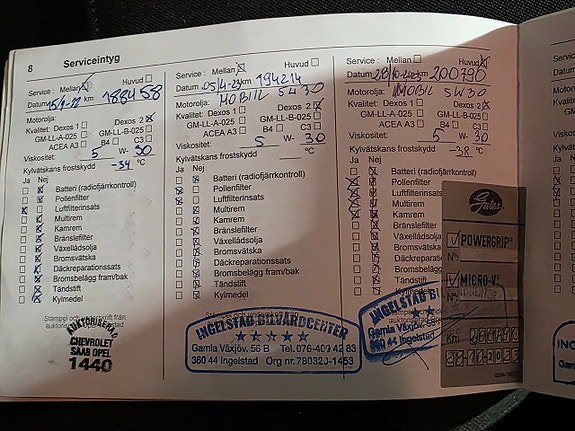 8 Serviceintyg
Service : Mellan Huvud
Datum 15/9-22 km 188458
Motorolja:
Kvalitet: Dexos 1 Dexos 2
GM-LL-A-025 GM-LL-B-025
ACEA A3 B4 C3
Viskositet: 5 W- 30
Kylvätskans frostskydd -34 °C
Ja Nej
Batteri (radiofjärrkontroll)
Pollenfilter
Luftfilterinsats
Multirem
Kamrem
Bränslefilter
Växellådsolja
Bromsvätska
Däckreparationssats
Bromsbelägg fram/bak
Tändstift
Kylmedel
Stämpel och underskrift från
AUKTORISERAD
CHEVROLET
SAAB OPEL
1440
Service : Mellan Huvud
Datum 05/4-23 km 194214
Motorolja: MOBIL 5W30
Kvalitet: Dexos 1 Dexos 2
GM-LL-A-025 GM-LL-B-025
ACEA A3 B4 C3
Viskositet: 5 W- 30
Kylvätskans frostskydd °C
Ja Nej
Batteri (radiofjärrkontroll)
Pollenfilter
Luftfilterinsats
Multirem
Kamrem
Bränslefilter
Växellådsolja
Bromsvätska
Däckreparationssats
Bromsbelägg fram/bak
Tändstift
Kylmedel
INGELSTAD BILVÅRDCENTER
Gamla Växjöv. 56 B Tel.076-409 42 83
360 44 Ingelstad Org nr.780320-1453
Service : Mellan Huvud
Datum 28/10-2023 km 200790
Motorolja: MOBIL 5W30
Kvalitet: Dexos 1 Dexos 2
GM-LL-A-025 GM-LL-B-025
ACEA A3 B4 C3
Viskositet: 5 W- 30
Kylvätskans frostskydd -38 °C
Ja Nej
Batteri (radiofjärrkontroll)
Pollenfilter
Luftfilterinsats
Multirem
Kamrem
Bränslefilter
Växellådsolja
Bromsvätska
Däckreparationssats
Bromsbelägg fram/bak
Tändstift
Kylmedel
INGELSTAD BI
Gamla Växjöv. 56
360 44 Ingelstad
Gates
POWERGRIP®
N°
MICRO-V®
N°
Km 200790
28-10-2023